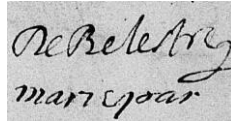 De Belestre
marie poar